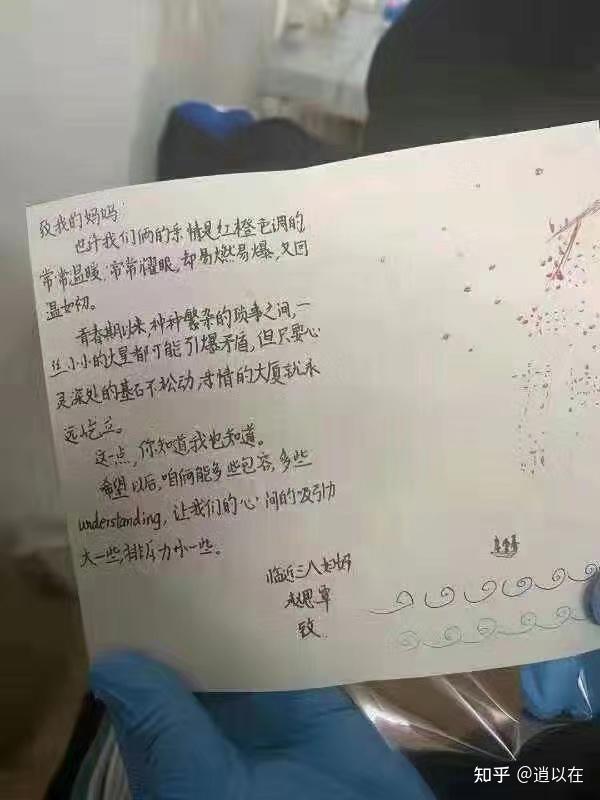 致我的妈妈
也许我们俩的亲情是红橙色调的,
常常温暖,常常耀眼,却易燃易爆,又回
温如初。
青春期以来,种种繁杂的琐事之间,一
丝小小的火星都可能引爆矛盾,但只要心
灵深处的基石不松动,浓情的大厦就永
远屹立。
这一点,你知道我也知道。
希望以后,咱俩能多些包容,多些
understanding,让我们的心间的吸引力
大一些,排斥力小一些。
临近三八
赵思
致
知乎 @逍以在